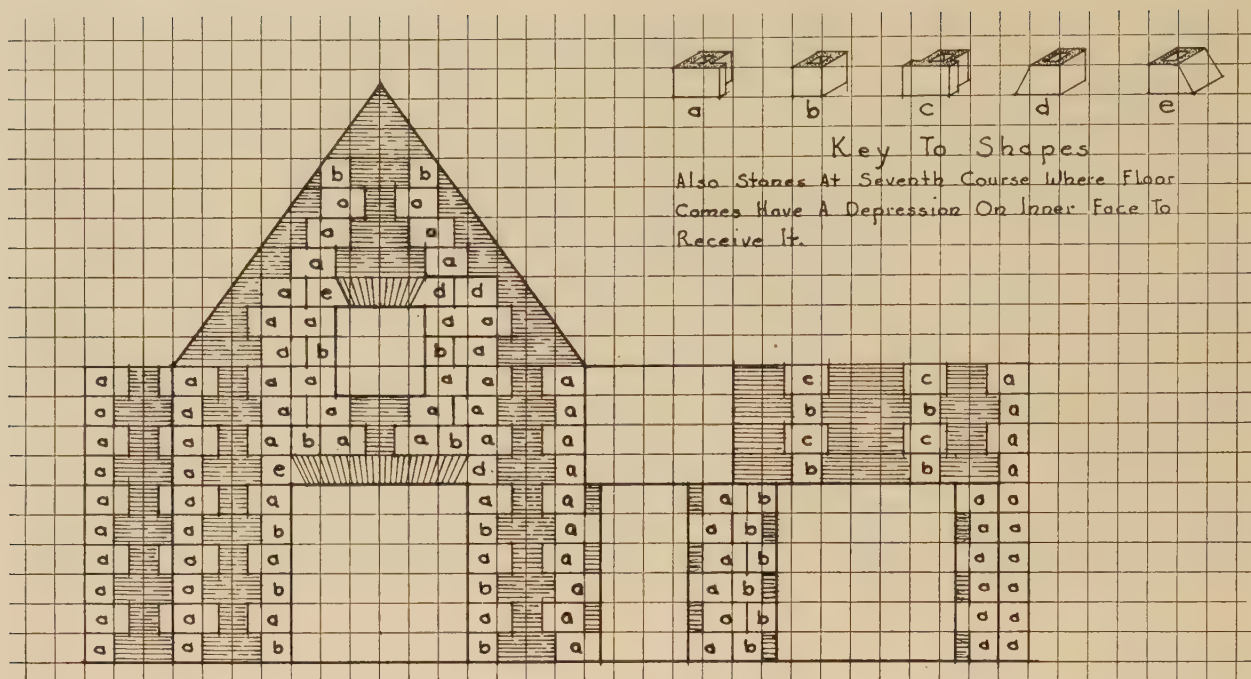 a b c d e
Key To Shapes
Also Stones At Seventh Course Where Floor
Comes Have A Depression On Inner Face To
Receive It.
b b
a a
a a
a a
a e d d
a a a a
a b b a
a a a a a a a c c a
a a a a a a a b b a
a a a b a a b a a c c a
a a e d a b b a
a a a a a a b a a
a a b b a a b a a
a a a a a a b a a
a a b b a a b a a
a a a a a a b a a
a a b b a a b a a